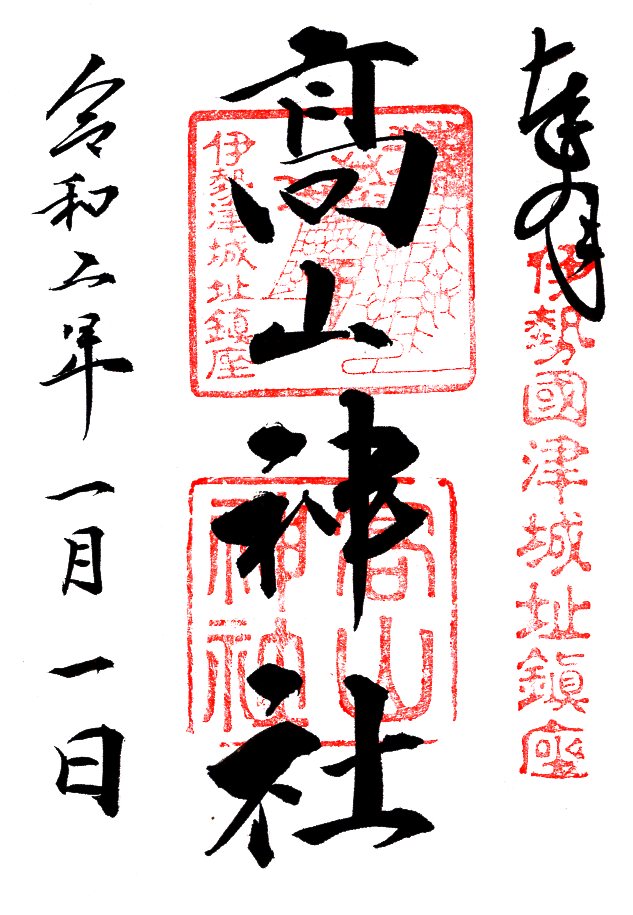 奉拝
伊勢國津城址鎮座
高山神社
伊勢津城址鎮座
高山
神社
令和二年一月一日